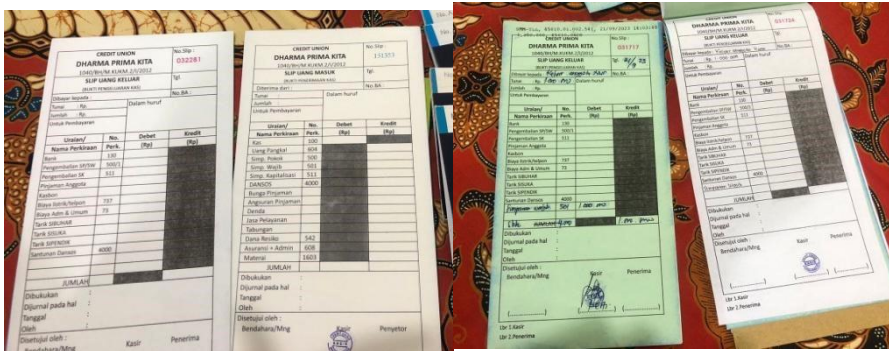 CREDIT UNION
No.Slip :
DHARMA PRIMA KITA
032281
1040/BH/M.KUKM.2/I/2012
SLIP UANG KELUAR
Tgl.
(BUKTI PENGELUARAN KAS)
Dibayar kepada :
No.BA :
Tunai : Rp.
Dalam huruf
Jumlah : Rp.
Untuk Pembayaran
Uraian/
Nama Perkiraan
No.
Perk.
Debet
(Rp)
Kredit
(Rp)
Bank 130
Pengembalian SP/SW 500/1
Pengembalian SK 511
Pinjaman Anggota
Kasbon
Biaya listrik/telpon 737
Biaya Adm & Umum 73
Tarik SIBUHAR
Tarik SISUKA
Tarik SIPENDIK
Santunan Dansos 4000
JUMLAH
Dibukukan :
Dijurnal pada hal :
Tanggal :
Oleh :
Disetujui oleh :
Bendahara/Mng Kasir Penerima
CREDIT UNION
No.Slip :
DHARMA PRIMA KITA
1040/BH/M.KUKM.2/I/2012
SLIP UANG MASUK
Tgl
(BUKTI PENERIMAAN KAS)
Diterima dari :
No.BA :
Tunai :
Dalam huruf
Jumlah :
Untuk Pembayaran
Uraian/
Nama Perkiraan
No.
Perk.
Debet
(Rp)
Kredit
(Rp)
Kas 100
Uang Pangkal 604
Simp. Pokok 500
Simp. Wajib 501
Simp. Kapitalisasi 511
DANSOS 4000
Bunga Pinjaman
Angsuran Pinjaman
Denda
Jasa Pelayanan
Tabungan
Dana Resiko 542
Asuransi + Admin 608
Materai 1603
JUMLAH
Dibukukan :
Dijurnal pada hal :
Tanggal :
Oleh :
Disetujui oleh :
Bendahara/Mng Kasir Penyetor
CREDIT UNION
DHARMA PRIMA KITA
031717
1040/BH/M.KUKM.2/I/2012
SLIP UANG KELUAR
(BUKTI PENGELUARAN KAS)
Dibayar kepada :
No.BA :
Tunai : Rp.
Dalam huruf
Jumlah : Rp.
Untuk Pembayaran
Uraian/
Nama Perkiraan
No.
Perk.
Debet
(Rp)
Kredit
(Rp)
Bank 130
Pengembalian SP/SW 500/1
Pengembalian SK 511
Pinjaman Anggota
Kasbon
Biaya listrik/telpon 737
Biaya Adm & Umum 73
Tarik SIBUHAR
Tarik SISUKA
Tarik SIPENDIK
Santunan Dansos 4000
JUMLAH
Dibukukan :
Dijurnal pada hal :
Tanggal :
Oleh :
Disetujui oleh :
Bendahara/Mng Kasir Penerima
Lbr 1.Kasir
Lbr 2.Penerima
CREDIT UNION
No.Slip :
DHARMA PRIMA KITA
1040/BH/M.KUKM.2/I/2012
SLIP UANG KELUAR
Tgl.
(BUKTI PENGELUARAN KAS)
Dibayar kepada :
No.BA :
Dalam huruf
Jumlah : Rp.
Untuk Pembayaran
Uraian/
Nama Perkiraan
No.
Perk.
Debet
(Rp)
Kredit
(Rp)
Bank 130
Pengembalian SP/SW 500/1
Pengembalian SK 511
Pinjaman Anggota
Kasbon
Biaya listrik/telpon 737
Biaya Adm & Umum 73
Tarik SIBUHAR
Tarik SISUKA
Tarik SIPENDIK
Santunan Dansos 4000
JUMLAH
Dibukukan :
Dijurnal pada hal :
Tanggal :
Oleh :
Disetujui oleh :
Bendahara/Mng Kasir Penerima
Lbr 1.Kasir
Lbr 2.Penerima